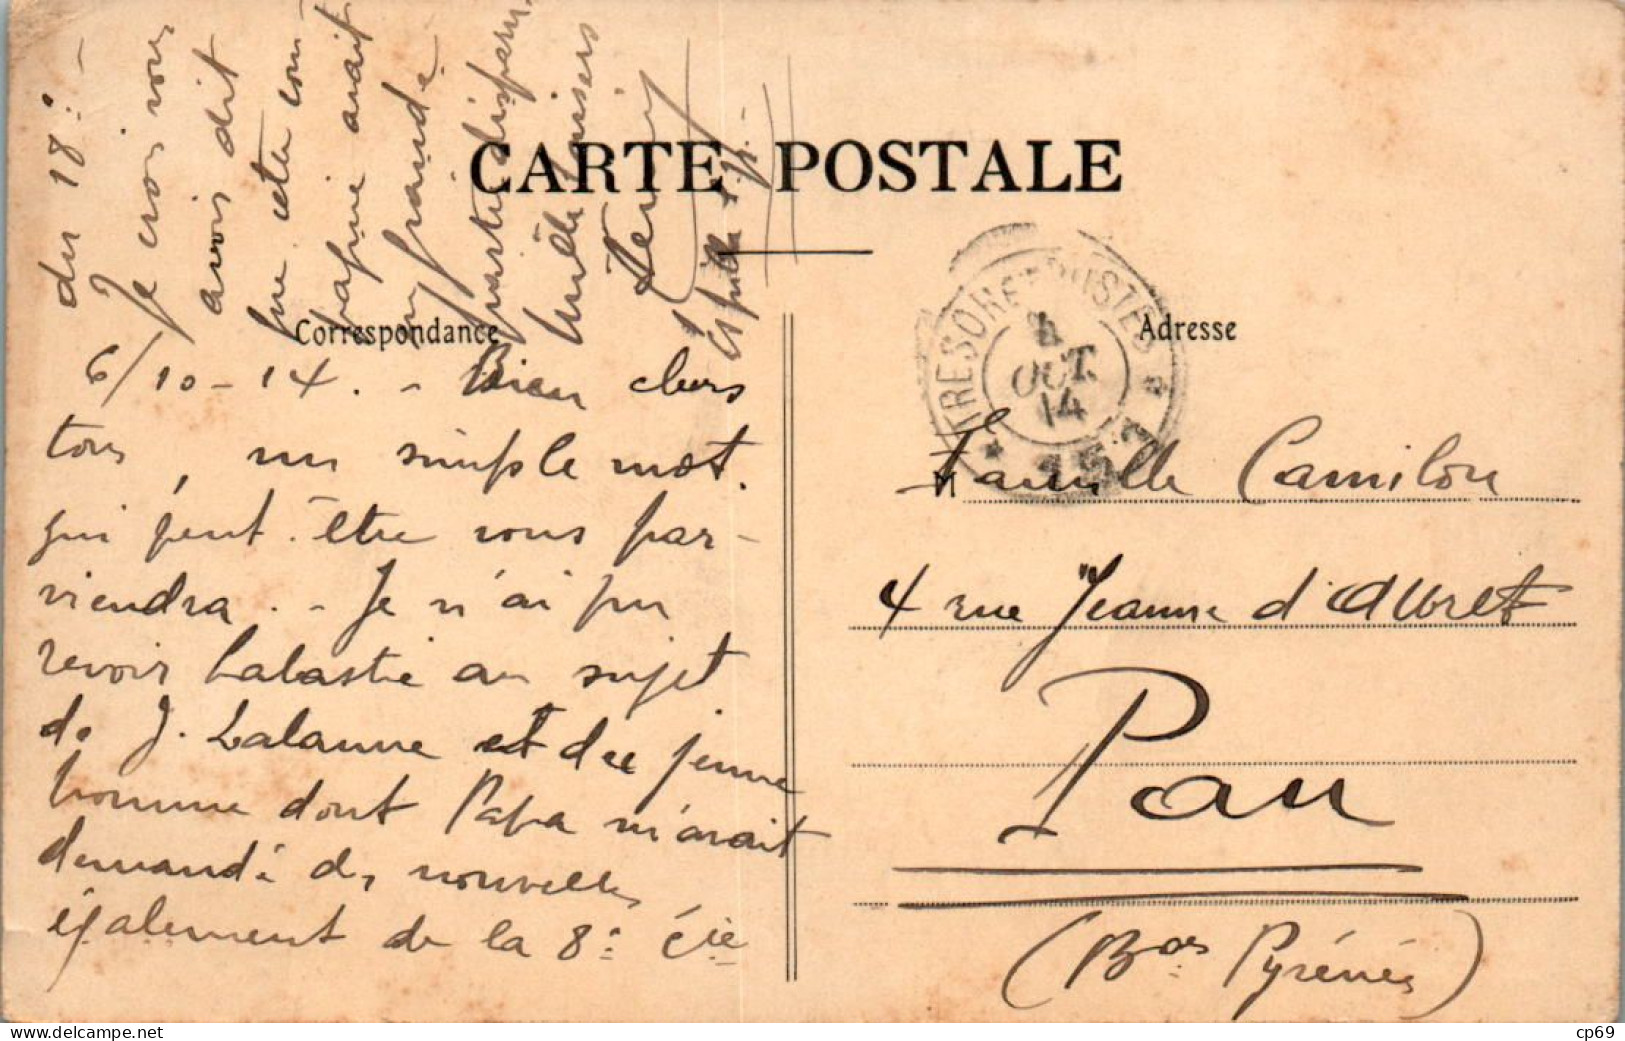 CARTE POSTALE
Correspondance
Adresse
6/10-14. - Bien chers
tous, un simple mot.
qui peut-être vous par-
viendra. - Je n'ai pu
revoir Labastie au sujet
de J. Lalanne et du jeune
homme dont Papa m'avait
demandé des nouvelles
également de la 8e Cie
du 18e -
Je crois vous
avoir dit
que cette com-
pagnie avait
en grande
partie disparu.
Mille baisers
TRESOR ET POSTES
OCT.
14
Famille Camilou
4 rue Jeanne d'Albret
Pau
(Bses Pyrénées)
Delcampe.net
cp69